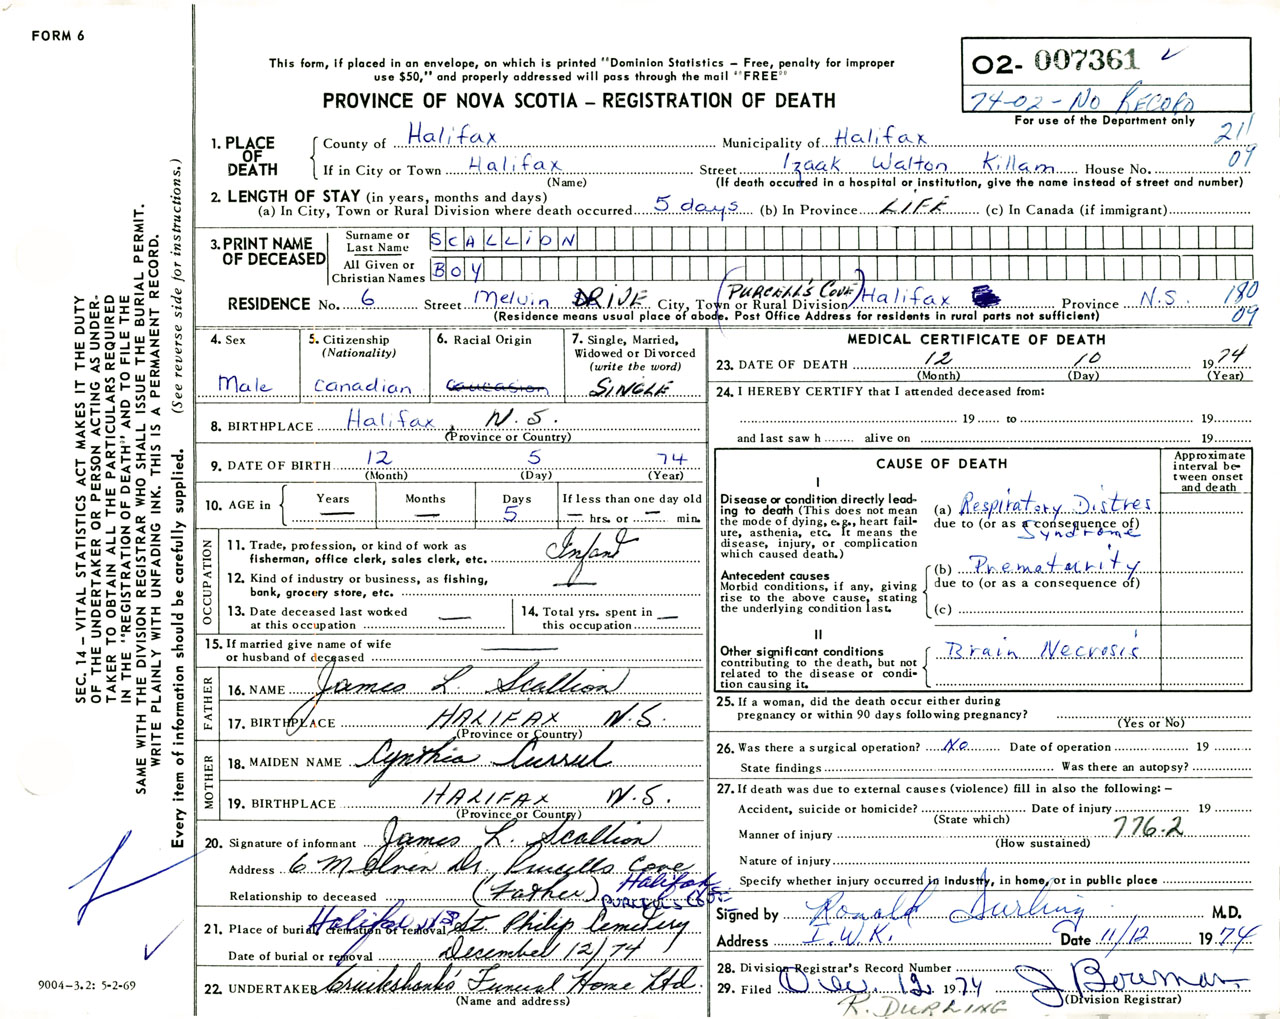 FORM 6
O2- 007361 ✓
74-02 - No RECORD
For use of the Department only
This form, if placed in an envelope, on which is printed "Dominion Statistics – Free, penalty for improper
use $50," and properly addressed will pass through the mail "FREE"
PROVINCE OF NOVA SCOTIA – REGISTRATION OF DEATH
SEC. 14 – VITAL STATISTICS ACT MAKES IT THE DUTY
OF THE UNDERTAKER OR PERSON ACTING AS UNDER-
TAKER TO OBTAIN ALL THE PARTICULARS REQUIRED
IN THE "REGISTRATION OF DEATH" AND TO FILE THE
SAME WITH THE DIVISION REGISTRAR WHO SHALL ISSUE THE BURIAL PERMIT.
WRITE PLAINLY WITH UNFADING INK. THIS IS A PERMANENT RECORD.
Every item of information should be carefully supplied. (See reverse side for instructions.)
1. PLACE OF DEATH
County of Halifax Municipality of Halifax 211
If in City or Town Halifax Street Izaak Walton Killam House No. 09
(Name) (If death occurred in a hospital or institution, give the name instead of street and number)
2. LENGTH OF STAY (in years, months and days)
(a) In City, Town or Rural Division where death occurred 5 days (b) In Province LIFE (c) In Canada (if immigrant)
3. PRINT NAME OF DECEASED
Surname or Last Name SCALLION
All Given or Christian Names BOY
RESIDENCE No. 6 Street Melvin DRIVE City, Town or Rural Division (PURCELL'S COVE) Halifax Province N.S. 180
09
(Residence means usual place of abode. Post Office Address for residents in rural parts not sufficient)
4. Sex Male
5. Citizenship (Nationality) Canadian
6. Racial Origin Caucasion
7. Single, Married, Widowed or Divorced (write the word) SINGLE
8. BIRTHPLACE Halifax, N.S.
(Province or Country)
9. DATE OF BIRTH 12 5 74
(Month) (Day) (Year)
10. AGE in Years — Months — Days 5 If less than one day old — hrs. or — min.
OCCUPATION
11. Trade, profession, or kind of work as
fisherman, office clerk, sales clerk, etc. Infant
12. Kind of industry or business, as fishing,
bank, grocery store, etc. —
13. Date deceased last worked
at this occupation —
14. Total yrs. spent in
this occupation —
15. If married give name of wife
or husband of deceased —
FATHER
16. NAME James L. Scallion
17. BIRTHPLACE HALIFAX N.S.
(Province or Country)
MOTHER
18. MAIDEN NAME Cynthia
19. BIRTHPLACE HALIFAX N.S.
(Province or Country)
20. Signature of informant James L. Scallion
Address 6 Melvin Dr. Purcells Cove
Halifax
Relationship to deceased (Father) PURCELL'S COVE
21. Place of burial, cremation or removal Halifax N.S. St. Philip Cemetery
Date of burial or removal December 12/74
22. UNDERTAKER Cruikshank's Funeral Home Ltd.
(Name and address)
MEDICAL CERTIFICATE OF DEATH
23. DATE OF DEATH 12 10 1974
(Month) (Day) (Year)
24. I HEREBY CERTIFY that I attended deceased from:
19 to 19
and last saw h alive on 19
CAUSE OF DEATH
Approximate interval between onset and death
I
Disease or condition directly lead-
ing to death (This does not mean
the mode of dying, e.g., heart fail-
ure, asthenia, etc. It means the
disease, injury, or complication
which caused death.)
(a) Respiratory Distres
due to (or as a consequence of)
Syndrome
Antecedent causes
Morbid conditions, if any, giving
rise to the above cause, stating
the underlying condition last.
(b) Prematurity
due to (or as a consequence of)
(c)
II
Other significant conditions
contributing to the death, but not
related to the disease or condi-
tion causing it.
Brain Necrosis
25. If a woman, did the death occur either during
pregnancy or within 90 days following pregnancy?
(Yes or No)
26. Was there a surgical operation? No Date of operation 19
State findings Was there an autopsy?
27. If death was due to external causes (violence) fill in also the following: –
Accident, suicide or homicide? Date of injury 19
(State which) 776.2
Manner of injury
(How sustained)
Nature of injury
Specify whether injury occurred in industry, in home, or in public place
Signed by Ronald Durling M.D.
Address I.W.K. Date 11/12 1974
28. Division Registrar's Record Number
29. Filed Dec. 12, 1974 J Bowman
(Division Registrar)
R. DURLING
9004-3.2: 5-2-69